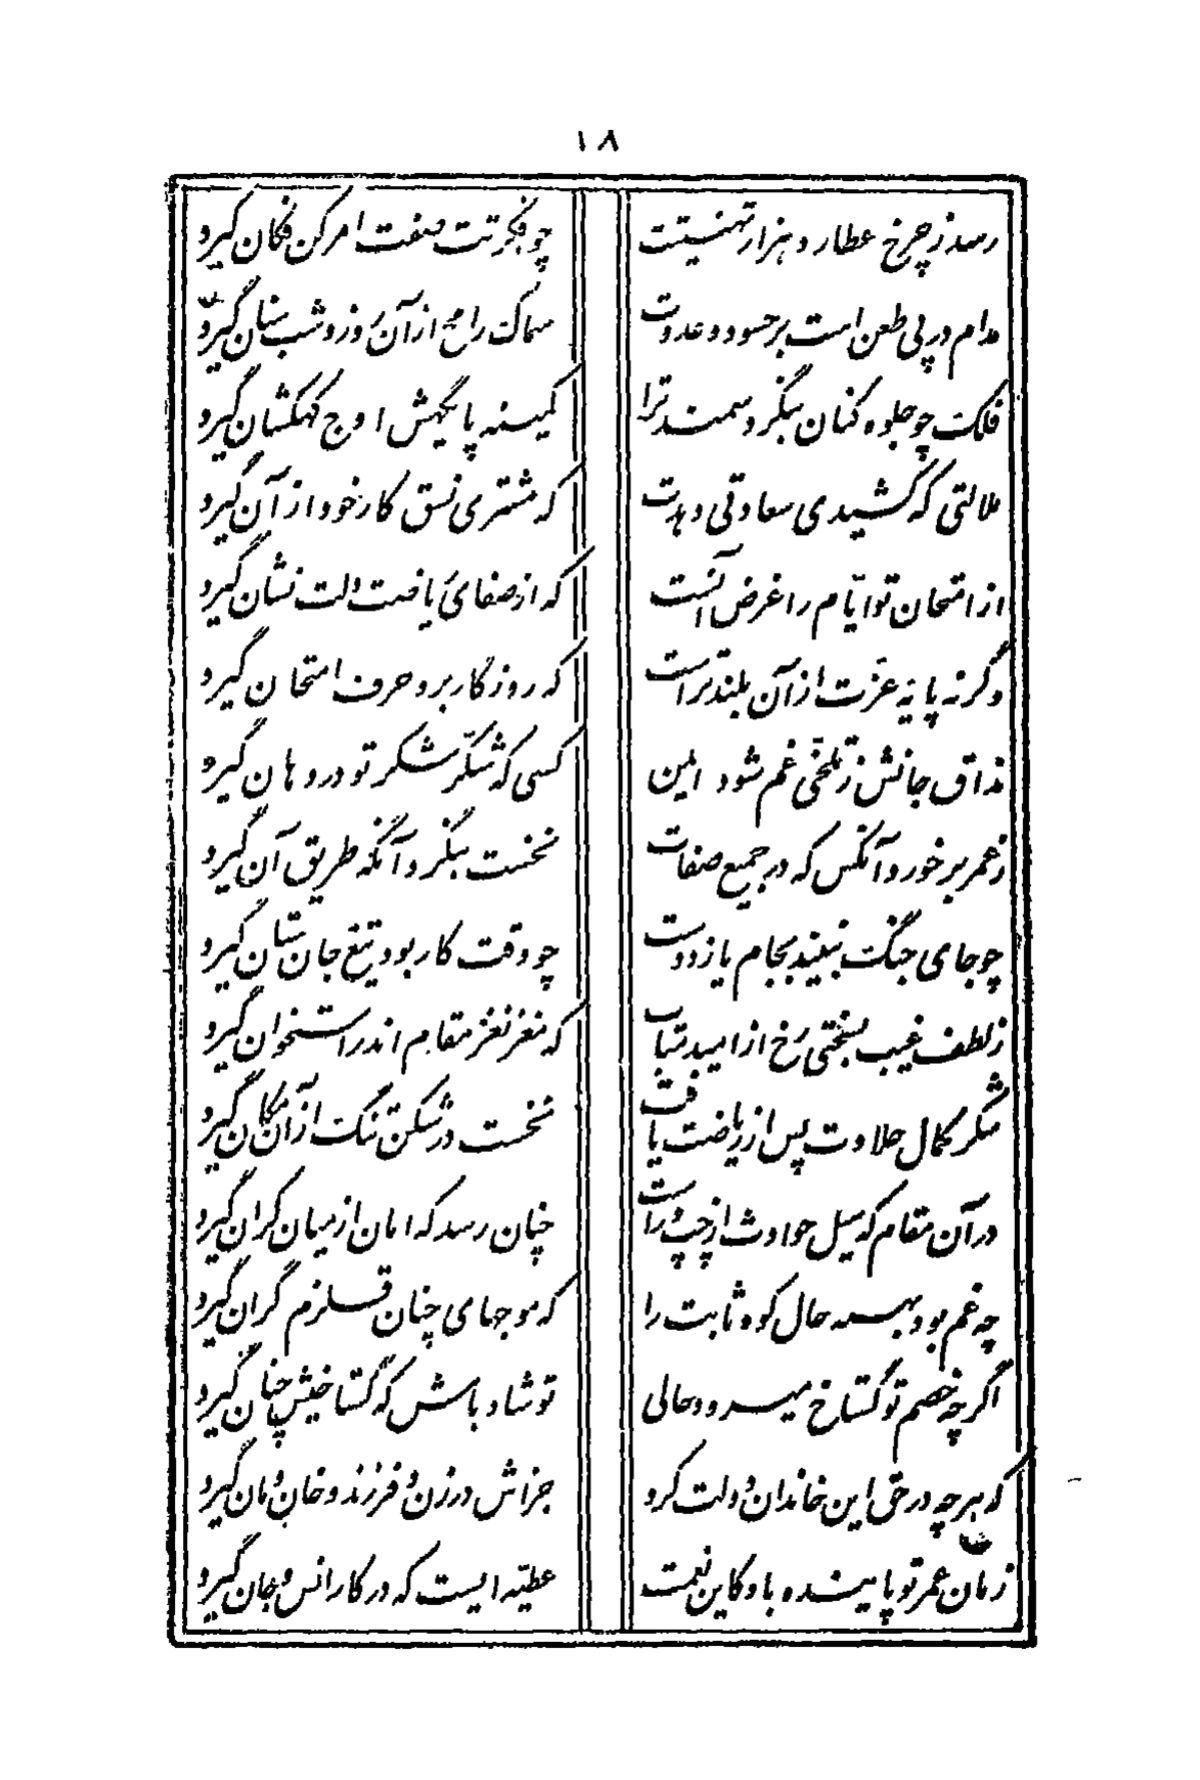 ۱۸
رسد ز چرخ عطارد هزار تهنیتت
چو فکرتت صفت امر کن فکان گیرد
مدام در پی طعن است بر حسود و عدوت
سماک رامح از آن روز و شب سنان گیرد
فلک چو جلوه کنان بنگرد سمند ترا
کمینه پایگهش اوج کهکشان گیرد
ملالتی که کشیدی سعادتی دهدت
که مشتری نسق کار خود از آن گیرد
از امتحان تو ایّام را غرض آنست
که از صفای ریاضت دلت نشان گیرد
وگرنه پایه عزّت از آن بلندتر است
که روزگار برو حرف امتحان گیرد
مذاق جانش ز تلخی غم شود ایمن
کسی که شکّر شکر تو در دهان گیرد
ز عمر بر خورد آنکس که در جمیع صفات
نخست بنگرد آنگه طریق آن گیرد
چو جای جنگ نبیند بجام یازد دست
چو وقت کار بود تیغ جان ستان گیرد
ز لطف غیب بسختی رخ از امید متاب
که مغز نغز مقام اندر استخوان گیرد
شکر کمال حلاوت پس از ریاضت یافت
نخست در شکن تنگ از آن مکان گیرد
در آن مقام که سیل حوادث از چپ و راست
چنان رسد که امان از میان کران گیرد
چه غم بود بهمه حال کوه ثابت را
که موجهای چنان قلزم گران گیرد
اگر چه خصم تو گستاخ میرود حالی
تو شاد باش که گستاخیش چنان گیرد
که هر چه در حق این خاندان دولت کرد
جزاش در زن و فرزند و خان و مان گیرد
زمان عمر تو پاینده باد کاین نعمت
عطیّه ایست که در کار انس و جان گیرد